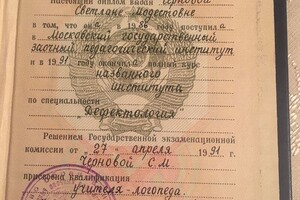 Настоящий диплом выдан Черновой
Светлане Модестовне
в том, что он а в 19 86 году поступил а
в Московский государственный
заочный педагогический институт
и в 19 91 году окончил а полный курс
названного
института
по специальности
„Дефектология"
Решением Государственной экзаменационной
комиссии от „ 27 " апреля 19 91 г.
Черновой С.М.
присвоена квалификация
учителя-логопеда.